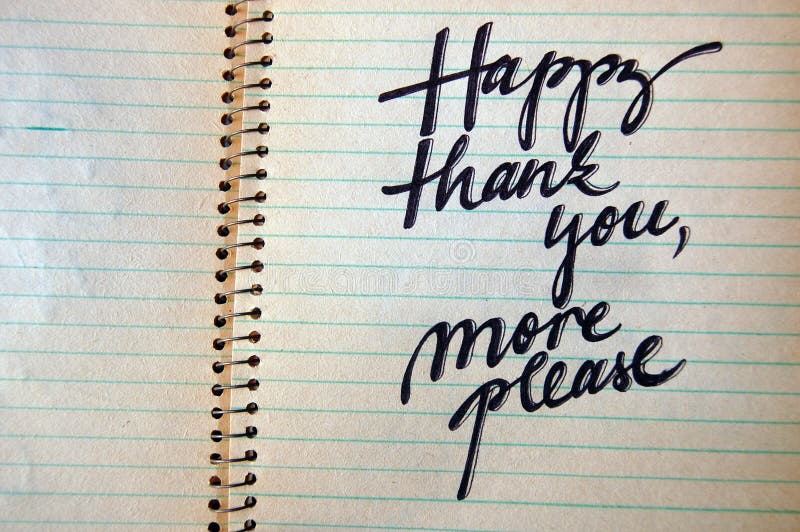 Happy
thank
you,
more
please
dreamstime